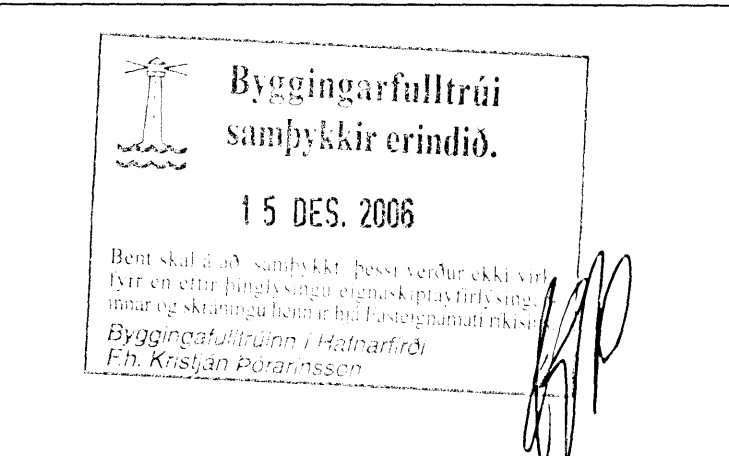 Byggingarfulltrúi
samþykkir erindið.
15 DES. 2006
Bent skal á að samþykkt þessi verður ekki virk
fyrr en eftir þinglýsingu eignaskiptayfirlýsing
innar og skráningu hennar hjá Fasteignamati ríkisins
Byggingafulltrúinn í Hafnarfirði
F.h. Kristján Þórarinsson